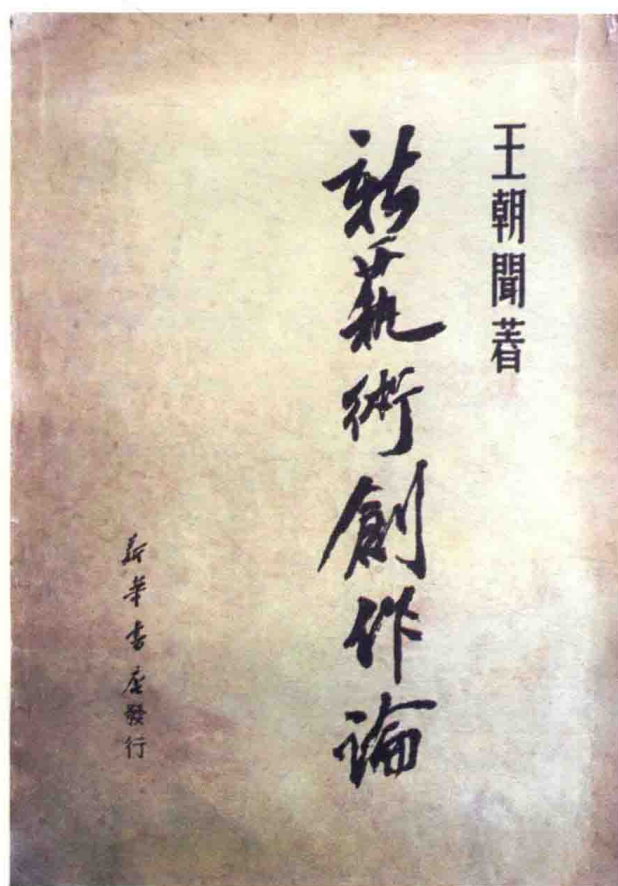 王朝聞著
新藝術創作論
新華書店發行